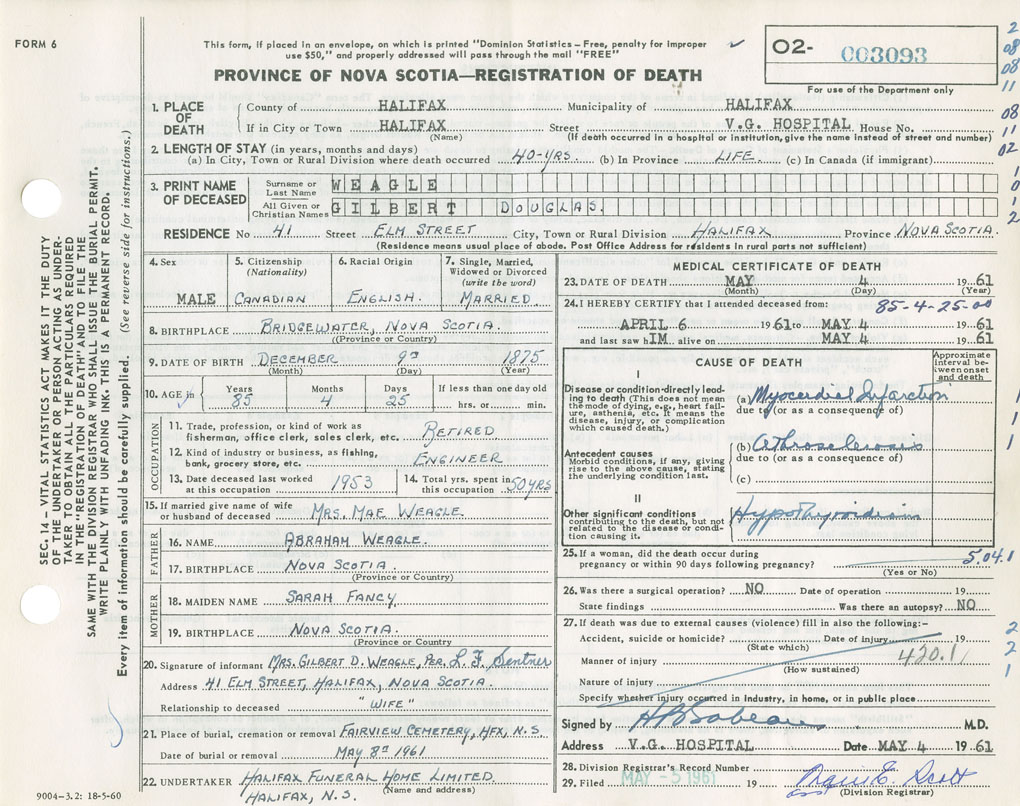 FORM 6
This form, if placed in an envelope, on which is printed "Dominion Statistics – Free, penalty for improper
use $50," and properly addressed will pass through the mail "FREE"
02- 003093
PROVINCE OF NOVA SCOTIA—REGISTRATION OF DEATH
For use of the Department only
1. PLACE OF DEATH
County of HALIFAX Municipality of HALIFAX
If in City or Town HALIFAX Street V.G. HOSPITAL House No.
(Name) (If death occurred in a hospital or institution, give the name instead of street and number)
2. LENGTH OF STAY (in years, months and days)
(a) In City, Town or Rural Division where death occurred 40-YRS. (b) In Province LIFE. (c) In Canada (if immigrant)
3. PRINT NAME OF DECEASED
Surname or Last Name WEAGLE
All Given or Christian Names GILBERT DOUGLAS.
RESIDENCE No 41 Street ELM STREET City, Town or Rural Division HALIFAX Province NOVA SCOTIA.
(Residence means usual place of abode. Post Office Address for residents in rural parts not sufficient)
4. Sex MALE
5. Citizenship (Nationality) CANADIAN
6. Racial Origin ENGLISH.
7. Single, Married, Widowed or Divorced (write the word) MARRIED.
8. BIRTHPLACE BRIDGEWATER, NOVA SCOTIA.
(Province or County)
9. DATE OF BIRTH DECEMBER 9TH 1875
(Month) (Day) (Year)
10. AGE in Years 85 Months 4 Days 25 If less than one day old hrs. or min.
OCCUPATION
11. Trade, profession, or kind of work as
fisherman, office clerk, sales clerk, etc. RETIRED
12. Kind of industry or business, as fishing,
bank, grocery store, etc. ENGINEER
13. Date deceased last worked
at this occupation 1953
14. Total yrs. spent in
this occupation 50 YRS
15. If married give name of wife
or husband of deceased MRS. MAE WEAGLE.
FATHER
16. NAME ABRAHAM WEAGLE.
17. BIRTHPLACE NOVA SCOTIA.
(Province or Country)
MOTHER
18. MAIDEN NAME SARAH FANCY
19. BIRTHPLACE NOVA SCOTIA.
(Province or Country
20. Signature of informant MRS. GILBERT D. WEAGLE, PER. L. F. Sentner
Address 41 ELM STREET, HALIFAX, NOVA SCOTIA.
Relationship to deceased "WIFE"
21. Place of burial, cremation or removal FAIRVIEW CEMETERY, HFX, N.S.
Date of burial or removal MAY 8TH 1961
22. UNDERTAKER HALIFAX FUNERAL HOME LIMITED.
(Name and address)
HALIFAX, N.S.
MEDICAL CERTIFICATE OF DEATH
23. DATE OF DEATH MAY 4 19 61
(Month) (Day) (Year)
24. I HEREBY CERTIFY that I attended deceased from: 85-4-25-00
APRIL 6 1961 to MAY 4 19 61
and last saw hIM. alive on MAY 4 19 61
CAUSE OF DEATH
Approximate interval between onset and death
I
Disease or condition directly leading to death (This does not mean the mode of dying, e.g., heart failure, asthenia, etc. It means the disease, injury, or complication which caused death.)
(a) Myocardial Infarction
due to (or as a consequence of)
Antecedent causes
Morbid conditions, if any, giving rise to the above cause, stating the underlying condition last.
(b) Atherosclerosis
due to (or as a consequence of)
(c)
II
Other significant conditions
contributing to the death, but not related to the disease or condition causing it.
Hypothyroidism
25. If a woman, did the death occur during
pregnancy or within 90 days following pregnancy?
(Yes or No)
5.04.1
26. Was there a surgical operation? NO Date of operation 19
State findings Was there an autopsy? NO
27. If death was due to external causes (violence) fill in also the following:-
Accident, suicide or homicide? Date of injury 19
(State which)
Manner of injury 420.1
(How sustained)
Nature of injury
Specify whether injury occurred in Industry, in home, or in public place
Signed by M.D.
Address V.G. HOSPITAL Date MAY 4 19 61
28. Division Registrar's Record Number
29. Filed MAY - 5 1961 19 Scott
(Division Registrar)
SEC. 14 – VITAL STATISTICS ACT MAKES IT THE DUTY
OF THE UNDERTAKER OR PERSON ACTING AS UNDER-
TAKER TO OBTAIN ALL THE PARTICULARS REQUIRED
IN THE "REGISTRATION OF DEATH" AND TO FILE THE
SAME WITH THE DIVISION REGISTRAR WHO SHALL ISSUE THE BURIAL PERMIT.
WRITE PLAINLY WITH UNFADING INK. THIS IS A PERMANENT RECORD.
Every item of information should be carefully supplied. (See reverse side for instructions.)
9004-3.2: 18-5-60
2
08
08
11
08
11
02
1
0
1
2
1
1
1
2
2
1